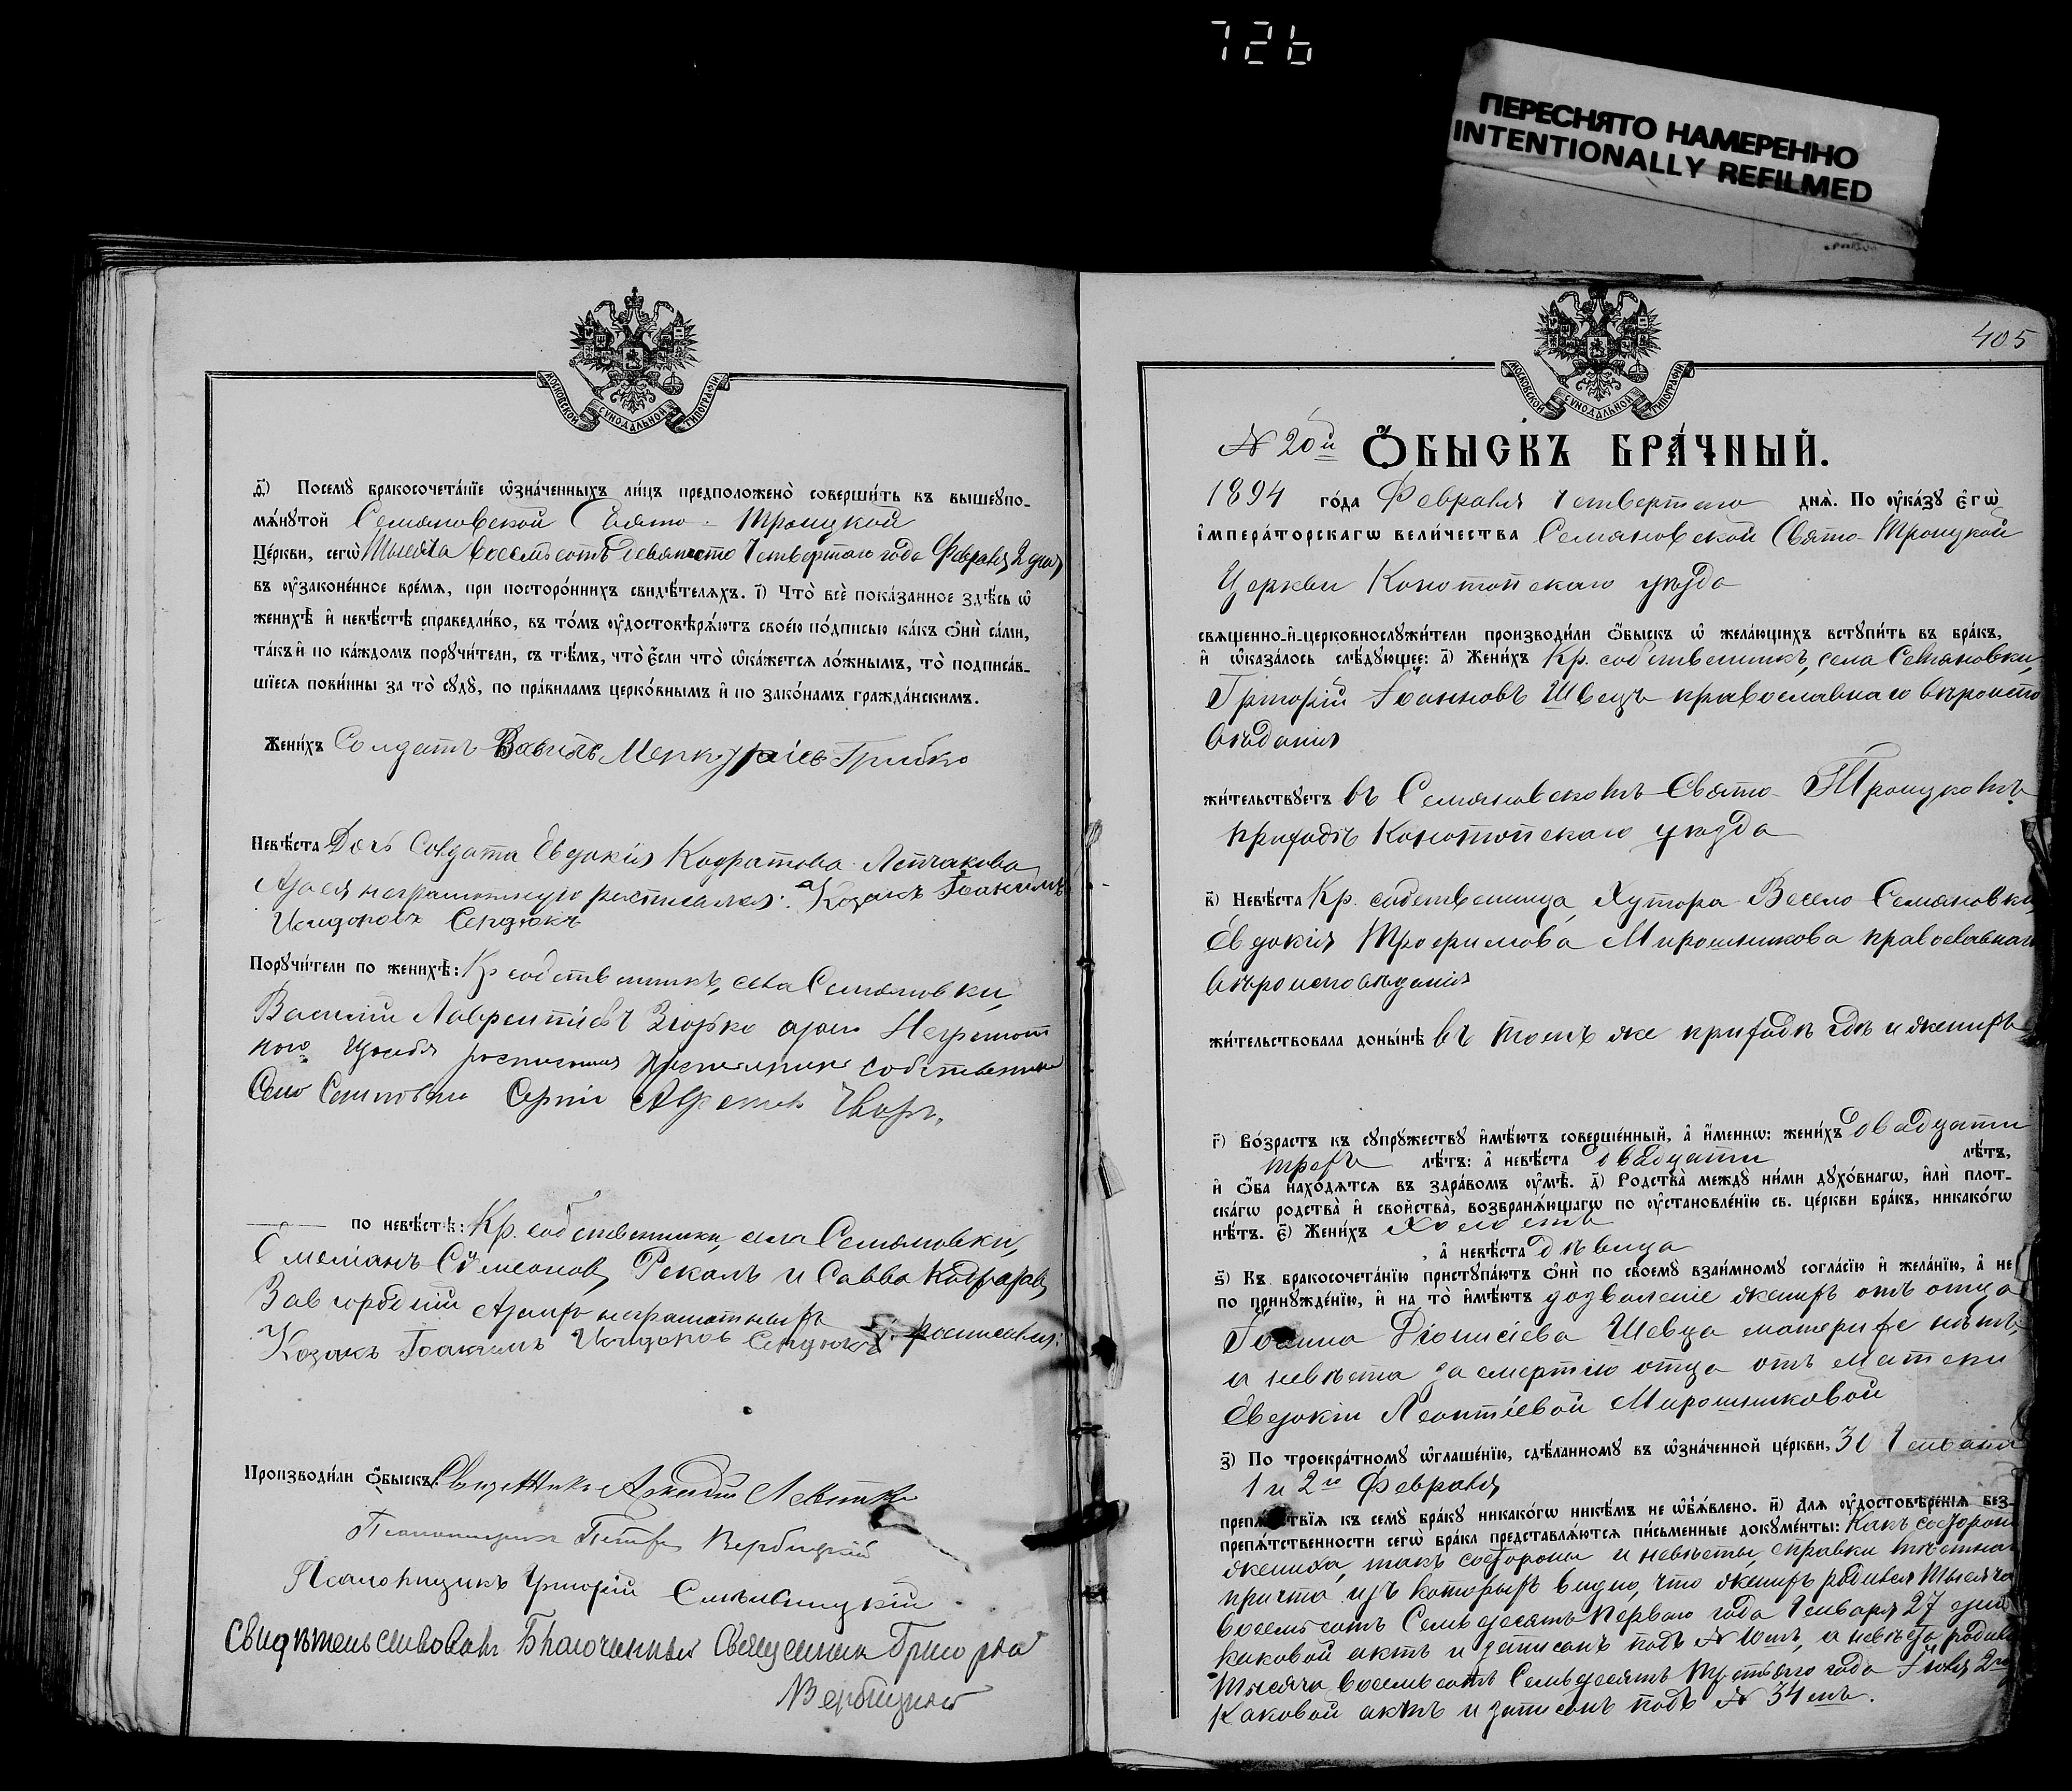 726
ПЕРЕСНЯТО НАМЕРЕННО
INTENTIONALLY REFILMED
МОСКОВСКОЙ СѴНОДАЛЬНОЙ ТИПОГРАФІИ
д҃) Посемꙋ бракосочета́нїе ѡ҆зна́ченныхъ ли́цъ предположено̀ соверши́ть въ вышеꙋпо-
мѧ́нꙋтой Семяновской Свято-Троицкой
Це́ркви, сегѡ̀ Тысяча восемьсотъ девяносто четвертаго года Февраля 2 дня
въ ᲂу҆зако́ненное вре́мѧ, при посторо́ннихъ свидѣ́телѧхъ. і҃) Что̀ всѐ пока́занное здѣ́сь ѡ҆
женихѣ̀ и҆ невѣ́стѣ справедли́во, въ то́мъ ᲂу҆достовѣрѧ́ютъ свое́ю по́дписью ка́къ ѻ҆нѝ са́ми,
та́къ и҆ по ка́ждомъ порꙋчи́тели, съ тѣ́мъ, что̀ є҆́сли что̀ ѡ҆ка́жетсѧ ло́жнымъ, то̀ подписа́в-
шїесѧ пови́нны за то̀ сꙋдꙋ̀, по пра́виламъ церко́внымъ и҆ по зако́намъ гражда́нскимъ.
Жени́хъ Солдатъ Вавилъ Меркуріевъ Грибко
Невѣ́ста Дочь Солдата Евдокія Кодратова
А за ея неграмотную росписался: Козакъ Іоакимъ
Исидоровъ Сердюкъ
Порꙋчи́тели по женихѣ̀: Кр. собственникъ, села Семяновки,
Василій Лаврентіевъ а за него неграмот
ного росписался собственникъ
Село Сергій
по невѣ́стѣ: Кр. собственники, села Семяновки,
Сѵмеоновъ, и Савва Кодратовъ
а за их неграмотныхъ
Козакъ Іоакимъ Исидоровъ Сердюкъ росписался.
Производи́ли ѻ҆́быскъ: Священникъ Аркадій Левитскій
Псаломщикъ Петръ Вербицкій
Псаломщикъ Григорій
Свидѣтельствовалъ Благочинный Священникъ Григорій
Вербицкій
405
МОСКОВСКОЙ СѴНОДАЛЬНОЙ ТИПОГРАФІИ
№ 20й Ѻ҆́БЫСКЪ БРА́ЧНЫЙ.
1894 го́да Февраля четвертаго днѧ̀. По ᲂу҆ка́зꙋ є҆гѡ̀
і҆мпера́торскагѡ вели́чества Семяновской Свято-Троицкой
Церкви Конотопскаго уѣзда
свѧщенно-и҆-церковнослꙋжи́тели производи́ли ѻ҆́быскъ ѡ҆ жела́ющихъ встꙋпи́ть въ бра́къ,
и҆ ѡ҆каза́лось слѣ́дꙋющее: а҃) Жени́хъ Кр. собственникъ, села Семяновки,
Григорій Іоанновъ Швецъ православнаго вѣроиспо
вѣданія
жи́тельствꙋетъ въ Семяновскомъ Свято-Троицкомъ
приходѣ Конотопскаго уѣзда
в҃) Невѣ́ста Кр. собственница, Хутора Весело-Семяновки,
Евдокія Трофимова Мирошникова православнаго
вѣроисповѣданія
жи́тельствовала доны́нѣ въ томъ же приходѣ гдѣ и женихъ
г҃) Во́зрастъ къ сꙋпрꙋ́жествꙋ и҆мѣ́ютъ соверше́нный, а҆ и҆́меннѡ: жени́хъ двадцати
трехъ лѣ́тъ: а҆ невѣ́ста двадцати лѣ́тъ,
и҆ ѻ҆́ба нахо́дѧтсѧ въ здра́вомъ ᲂу҆мѣ̀. д҃) Родства̀ междꙋ̀ ни́ми дꙋхо́внагѡ, и҆лѝ плот-
ска́гѡ родства̀ и҆ сво́йства, возбранѧ́ющагѡ по ᲂу҆становле́нїю св. це́ркви бра́къ, никако́гѡ
нѣ́тъ. є҃) Жени́хъ холостъ
, а҆ невѣ́ста дѣвица
ѕ҃) Къ бракосочета́нїю пристꙋпа́ютъ ѻ҆нѝ по своемꙋ̀ взаи́мномꙋ согла́сїю и҆ жела́нїю, а҆ не
по принꙋжде́нїю, и҆ на то̀ и҆мѣ́ютъ дозволеніе женихъ отъ отца
Іоанна Діонисіева Шевца матери же нѣтъ,
и невѣста за смертію отца отъ матери
Евдокіи Леонтіевой Мирошниковой
з҃) По троекра́тномꙋ ѡ҆глаше́нїю, сдѣ́ланномꙋ въ ѡ҆зна́ченной це́ркви, 30 Генваря
1 и 2го Февраля
препѧ́тствїѧ къ семꙋ̀ бра́кꙋ никако́гѡ никѣ́мъ не ѡ҆б̾ѧ́влено. и҃) Длѧ ᲂу҆достовѣре́нїѧ без-
препѧ́тственности сегѡ̀ бра́ка представлѧ́ютсѧ пи́сьменные докꙋме́нты: Какъ состороны
жениха, такъ состороны и невѣсты, справки мѣстнаго
причта изъ которыхъ видно, что женихъ родился тысяча
восемьсотъ Семьдесятъ перваго года Генваря 27 дня
каковой актъ и записанъ подъ № 10мъ, а невѣста родилась
тысяча восемьсотъ Семьдесятъ третьяго года 2го
каковой актъ и записанъ подъ № 34мъ.